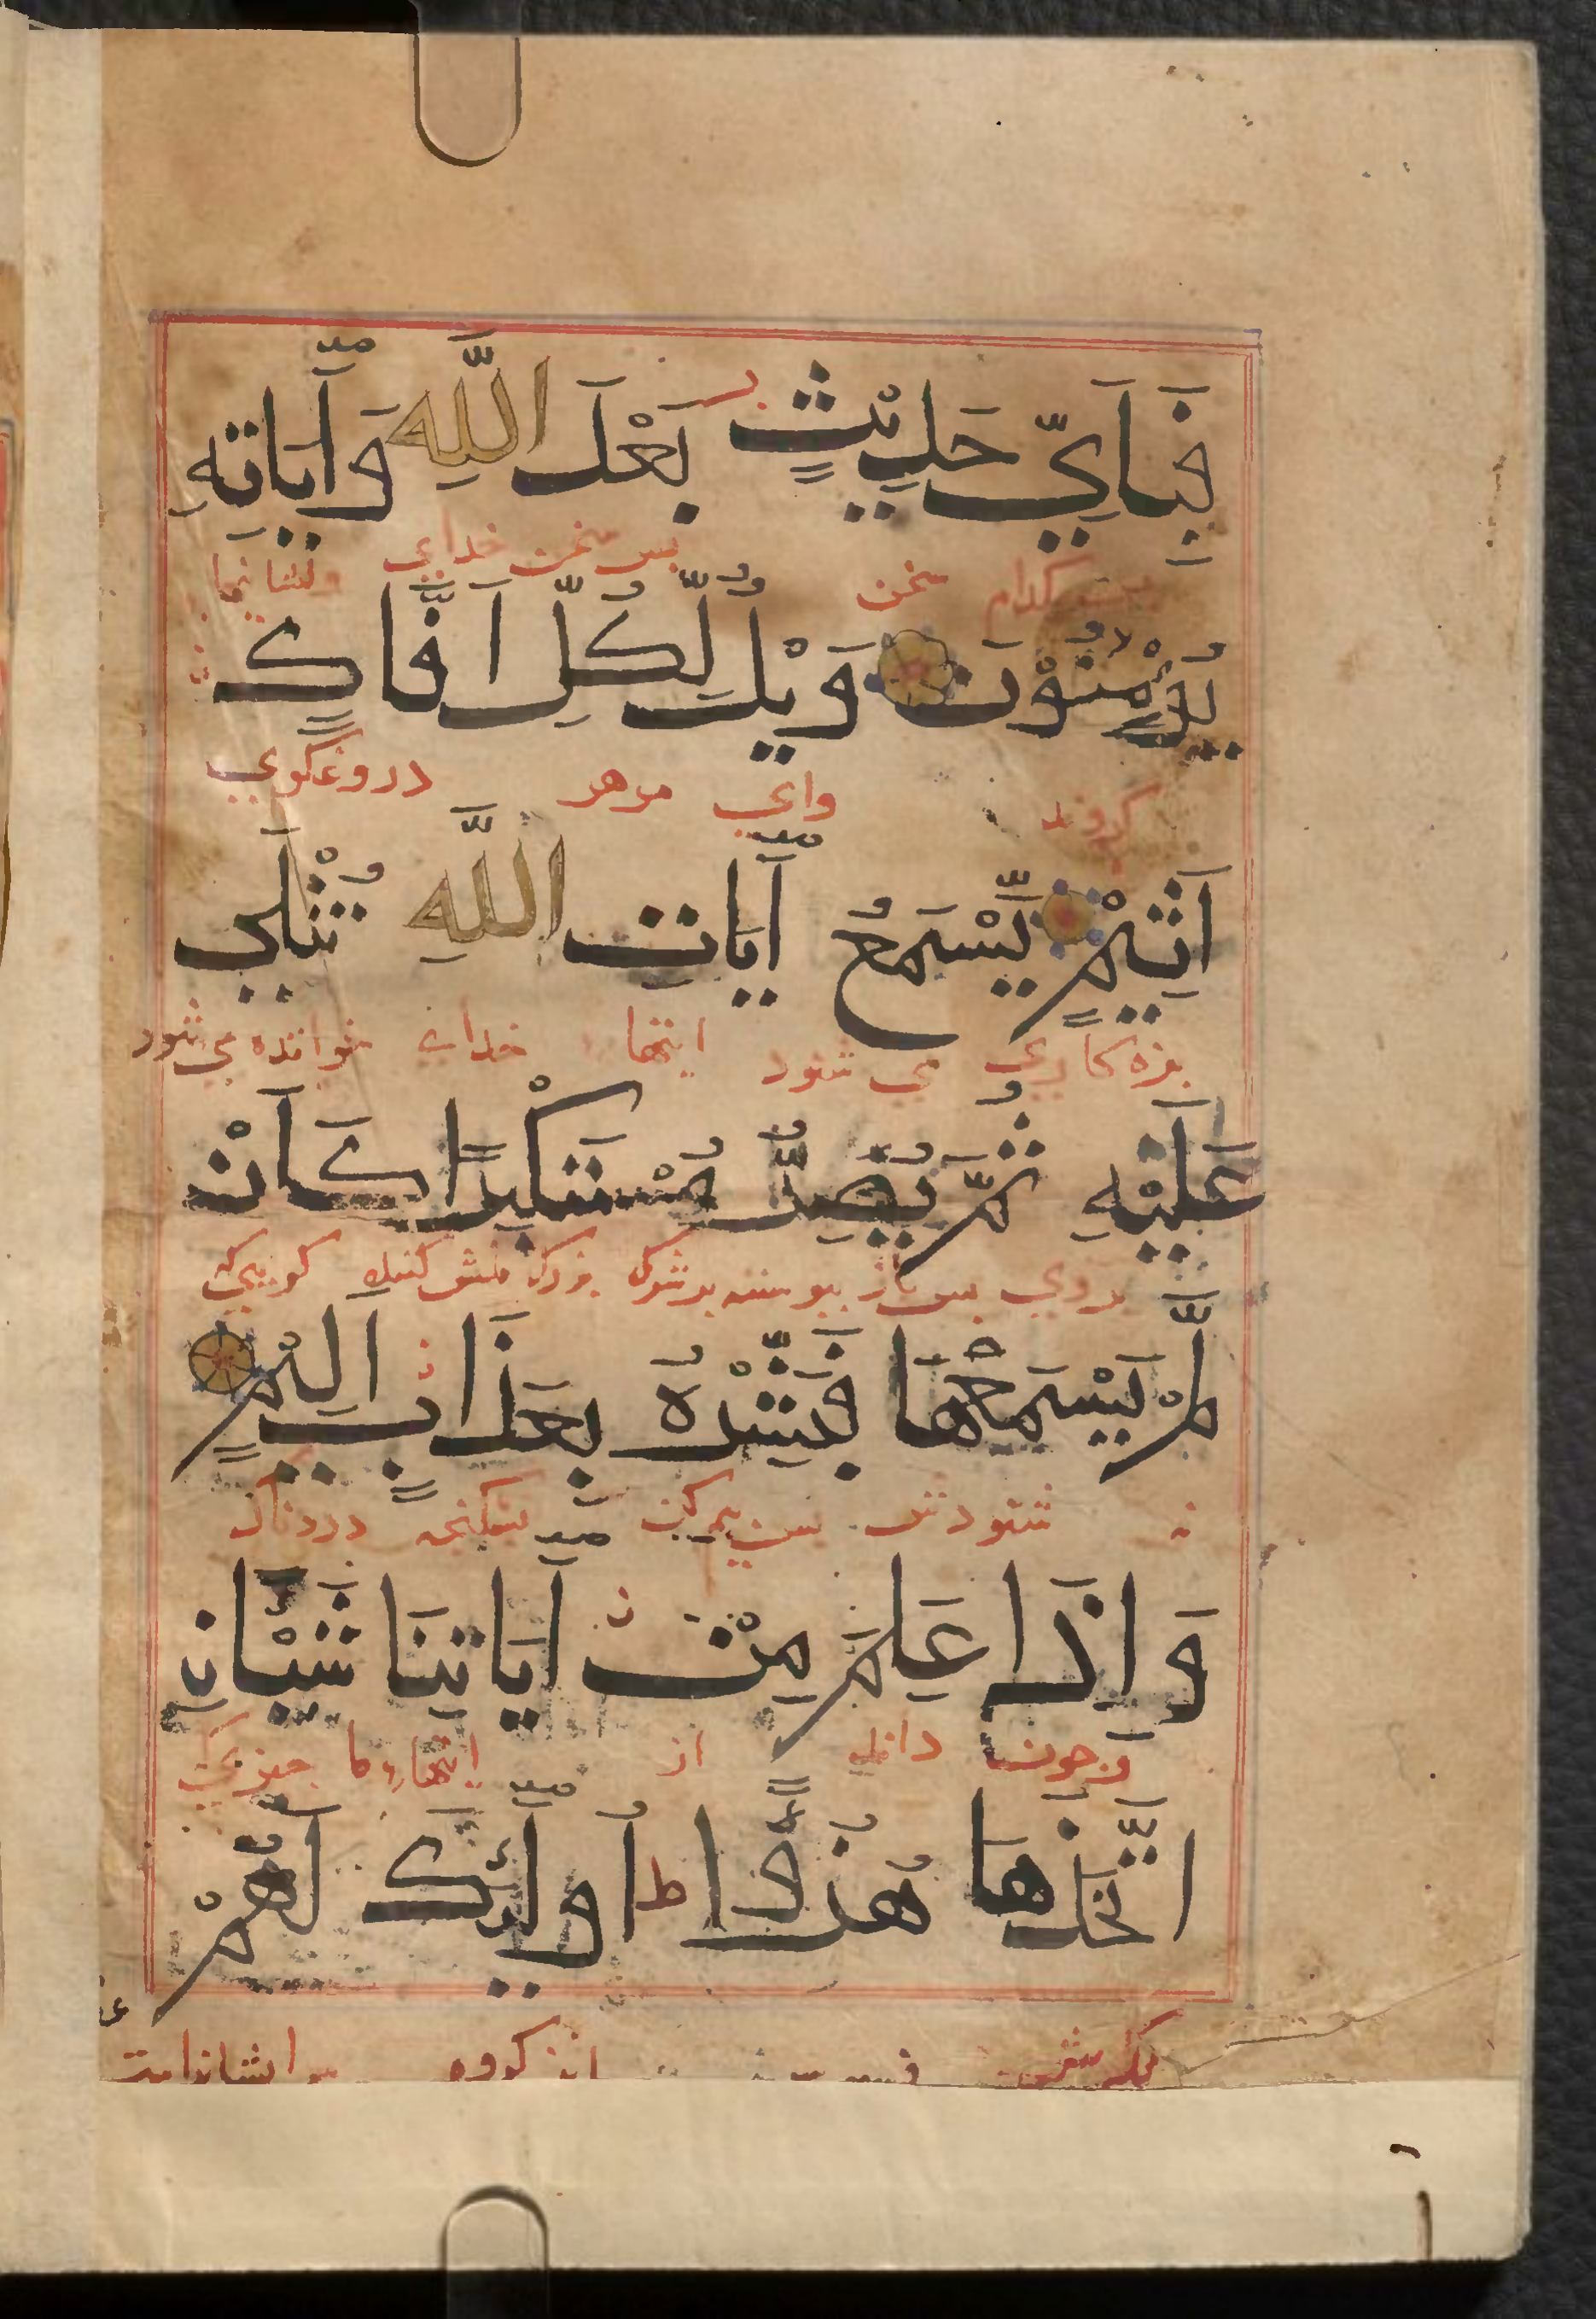 فَبِأَيِّ حَدِيْثٍ بَعْدَ اللّٰهِ وَآيَاتِهِ
پس کدام سخن پس سخن خدای ونشانیها
يُؤْمِنُوْنَ وَيْلٌ لِّكُلِّ اَفَّاكٍ
کروند وای مرهر دروغ کوی
اَثِيْمٍ يَّسْمَعُ آيَاتِ اللّٰهِ تُتْلَي
بزه کاری می شنود ایتها خدای خوانده می شود
عَلَيْهِ ثُمَّ يُصِرُّ مُسْتَكْبِرًا كَاَنْ
بروی پس باز بزرک منش کننده کویی که
لَّمْ يَسْمَعْهَا فَبَشِّرْهُ بِعَذَابٍ اَلِيْمٍ
نه شنودش پس شکنجه دردناک
وَاِذَا عَلِمَ مِنْ آيَاتِنَا شَيْئًانِ
وچون داند از ایتهاء ما چیزیکی
اتَّخَذَهَا هُزُوًا ط اُولٰٓئِكَ لَهُمْ
ان کروه ایشانراست